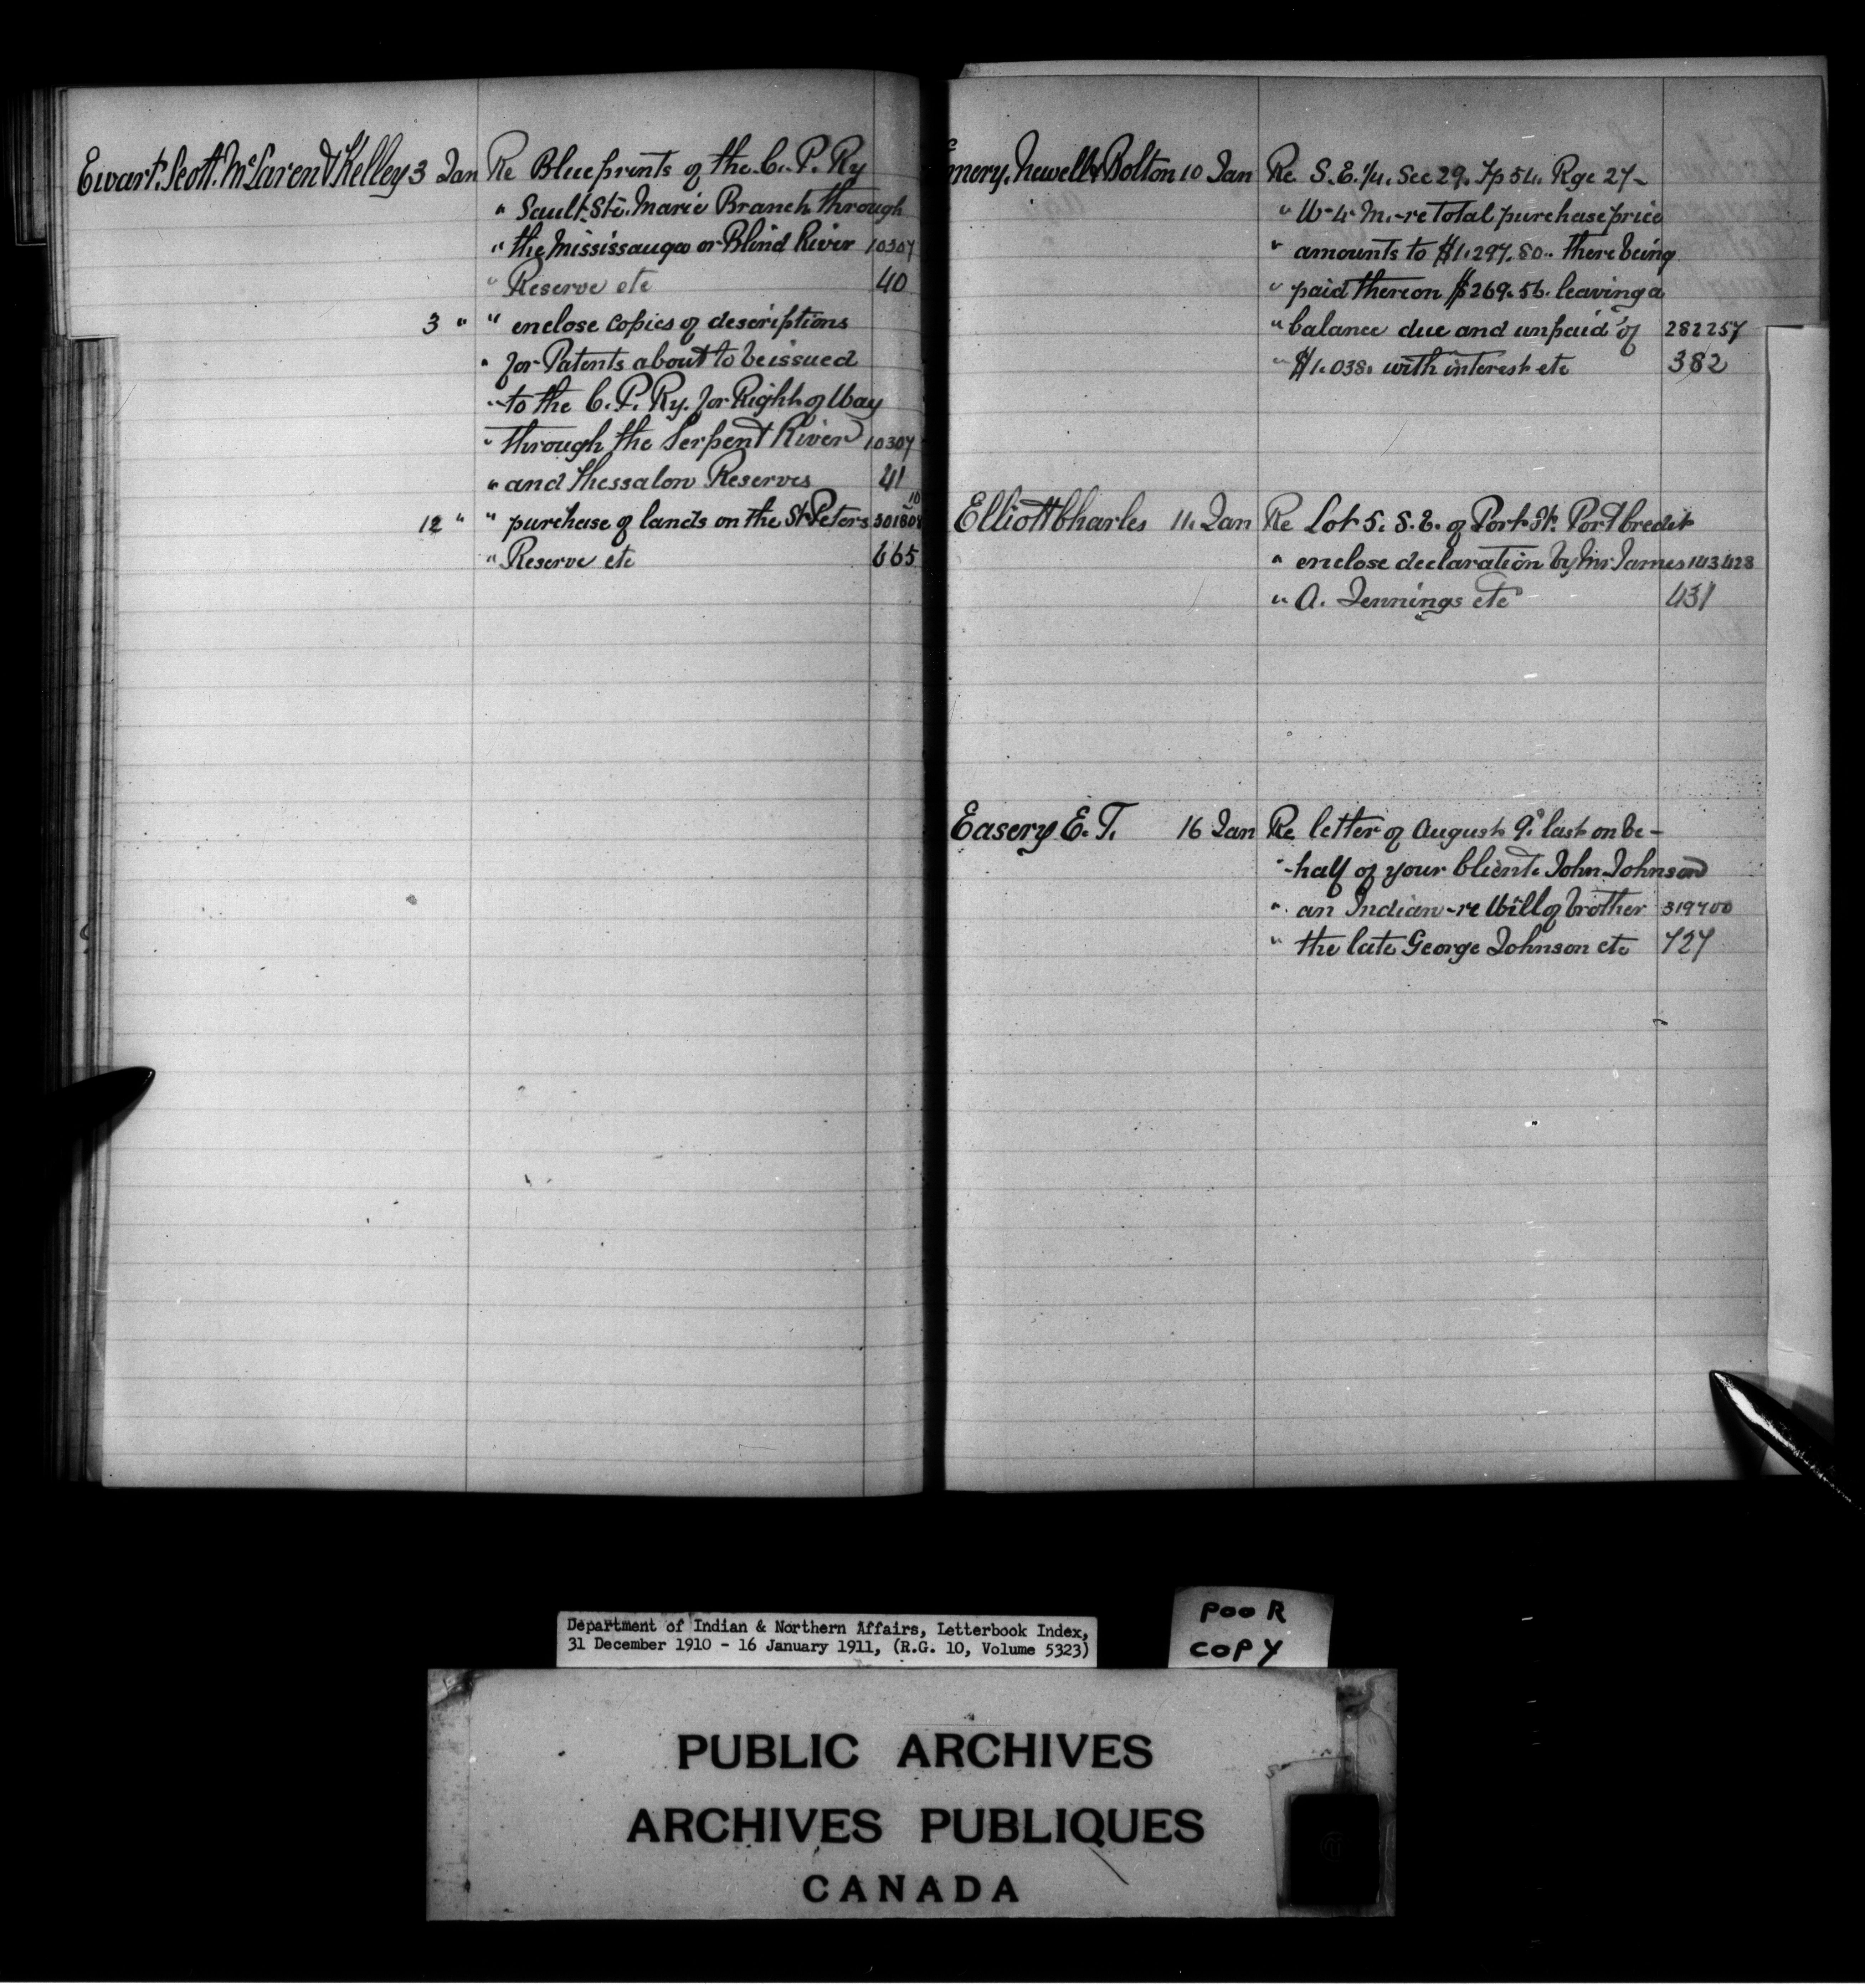 Ewart. Scott. McLaren & Kelley 3 Jan Re Blueprints of the C. P. Ry
" Sault Ste. Marie Branch through
" the Mississauga or Blind River 10307
" Reserve etc 40
3 " " enclose copies of descriptions
" for Patents about to be issued
" to the C. P. Ry. for Right of Way
" through the Serpent River 10307
" and Thessalon Reserves 41
12 " " purchase of lands on the St Peters
" Reserve etc 665
Emery. Newell & Bolton 10 Jan Re S. E. 1/4. Sec 29. Tp 54. Rge 27-
" W-4. M.-re Total purchase price
" amounts to $1.297.80.. there being
" paid thereon $269.56. leaving a
" balance due and unpaid of 282257
" $1.038. with interest etc 382
Elliott Charles 11. Jan Re Lot 5. S. E. of Port St. Port Credit
" enclose declaration by Mr James 143428
" A. Jennings etc 431
Easery E. T. 16 Jan Re letter of August 9th last on be-
" -half of your Client. John Johnson
" an Indian-re Will of brother 319700
" the late George Johnson etc 727
Department of Indian & Northern Affairs, Letterbook Index,
31 December 1910 - 16 January 1911, (R.G. 10, Volume 5323)
POOR
COPY
PUBLIC ARCHIVES
ARCHIVES PUBLIQUES
CANADA